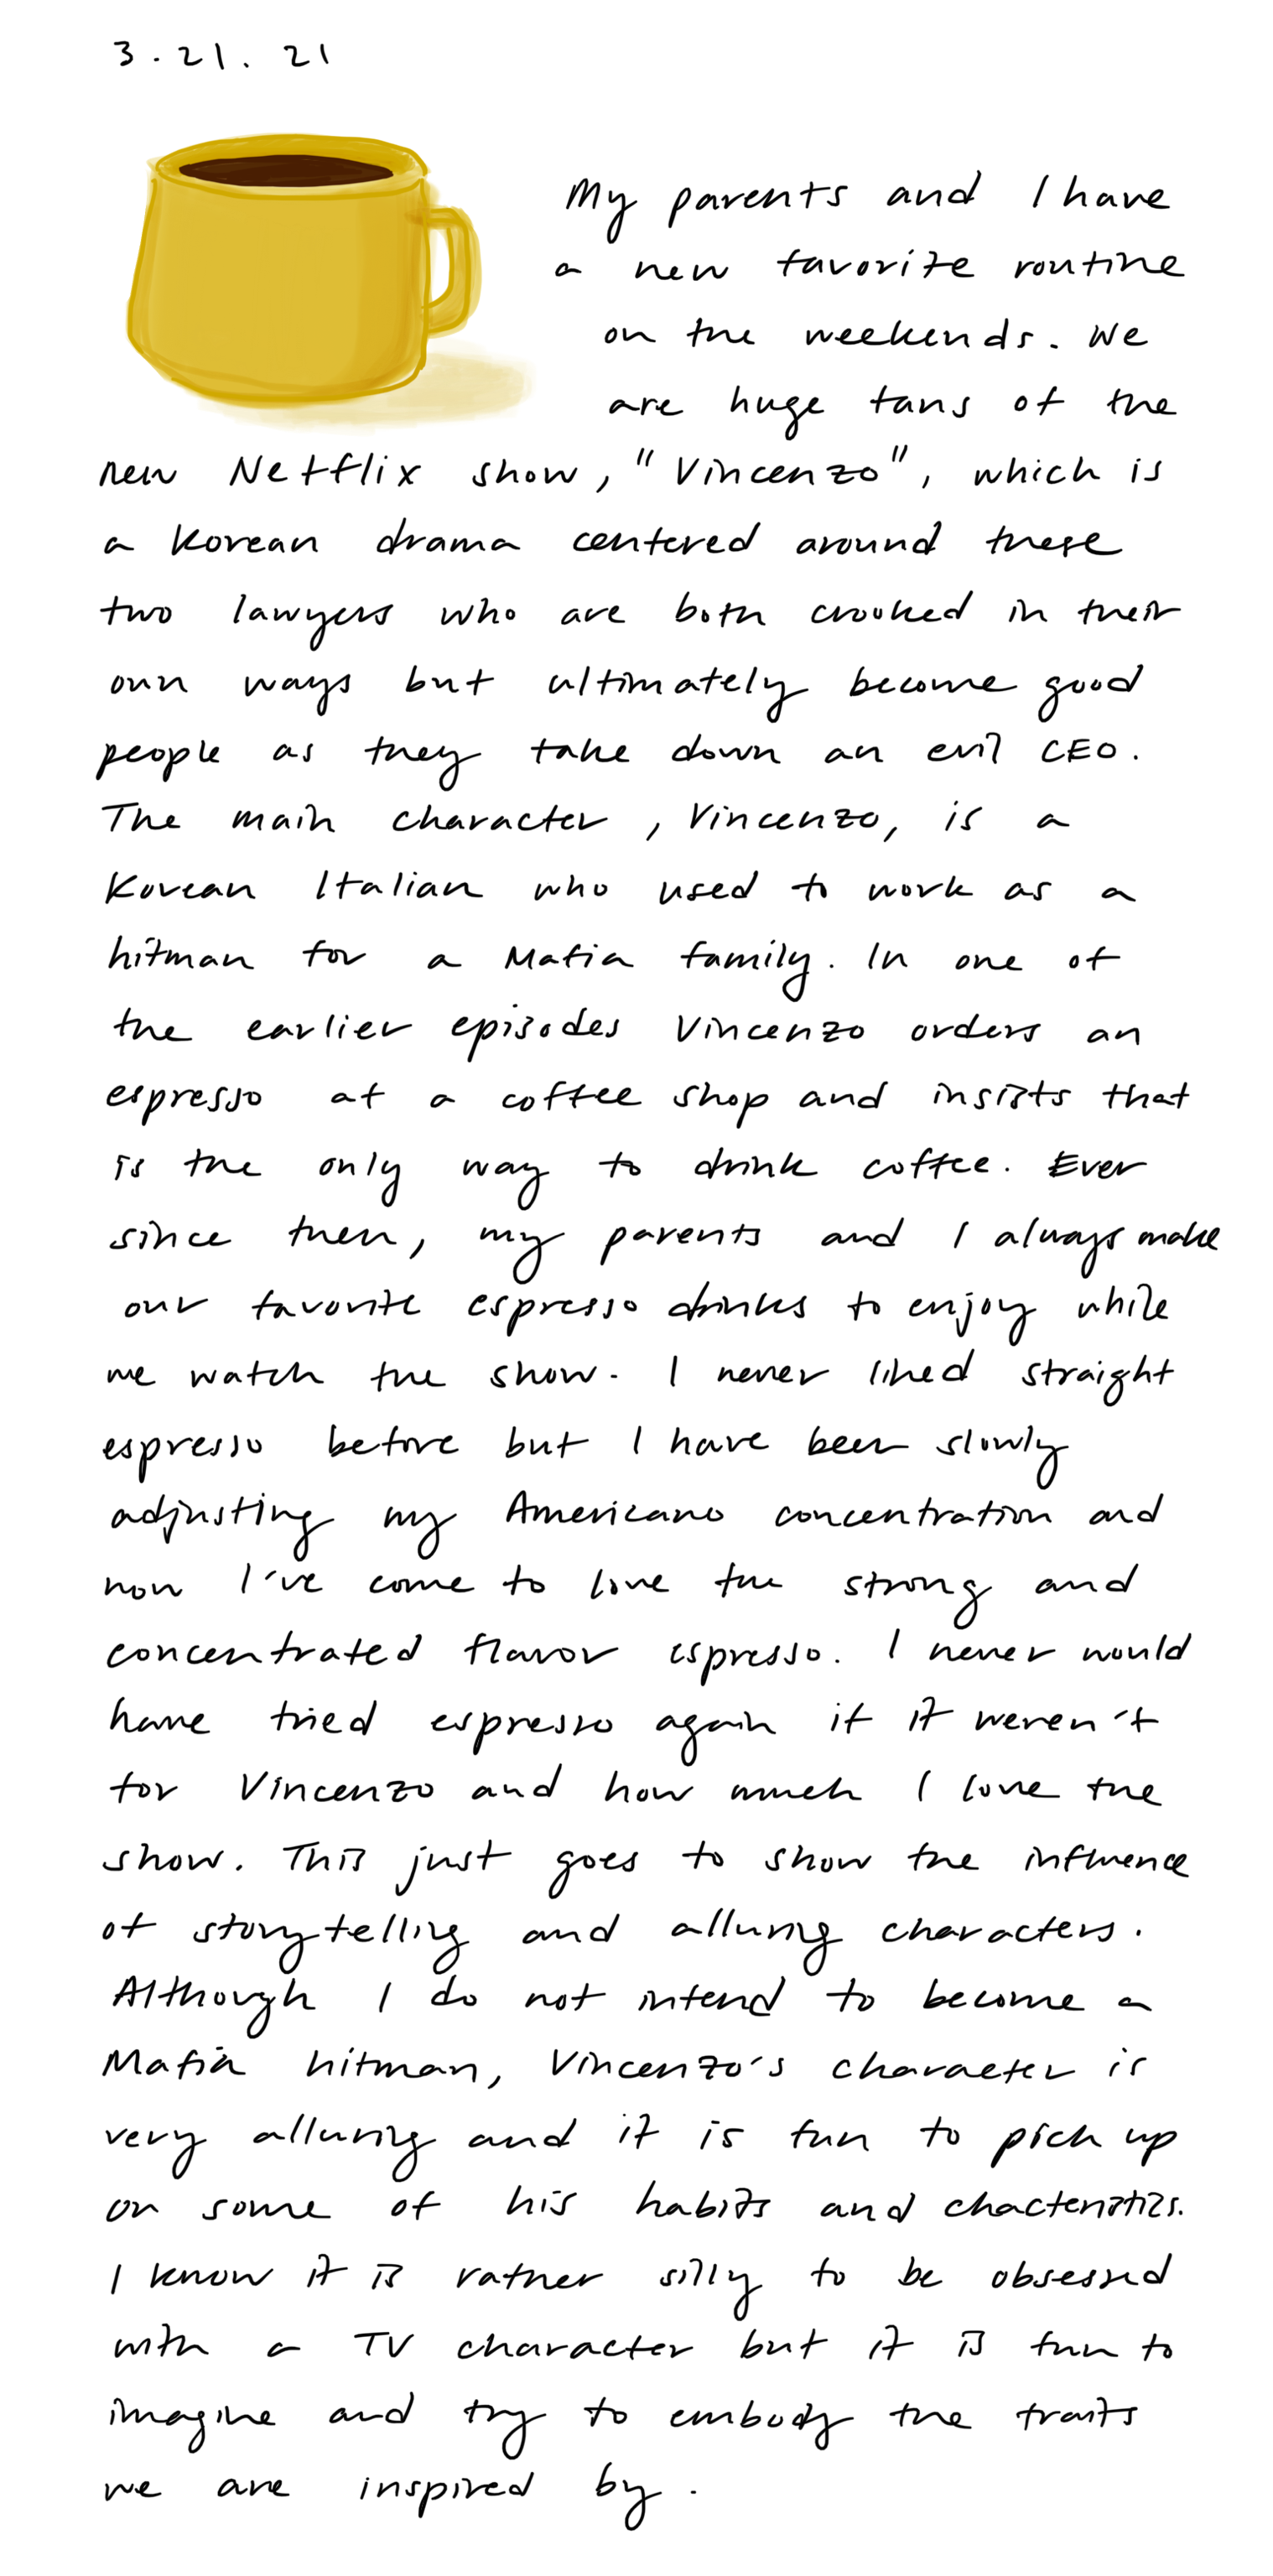 3.21.21
My parents and I have
a new favorite routine
on the weekends. We
are huge fans of the
new Netflix show, "Vincenzo", which is
a Korean drama centered around these
two lawyers who are both crooked in their
own ways but ultimately become good
people as they take down an evil CEO.
The main character, Vincenzo, is a
Korean Italian who used to work as a
hitman for a Mafia family. In one of
the earlier episodes Vincenzo orders an
espresso at a coffee shop and insists that
is the only way to drink coffee. Ever
since then, my parents and I always make
our favorite espresso drinks to enjoy while
we watch the show. I never liked straight
espresso before but I have been slowly
adjusting my Americano concentration and
now I've come to love the strong and
concentrated flavor espresso. I never would
have tried espresso again if it weren't
for Vincenzo and how much I love the
show. This just goes to show the influence
of storytelling and alluring characters.
Although I do not intend to become a
Mafia hitman, Vincenzo's character is
very alluring and it is fun to pick up
on some of his habits and chacteristics.
I know it is rather silly to be obsessed
with a TV character but it is fun to
imagine and try to embody the traits
we are inspired by.